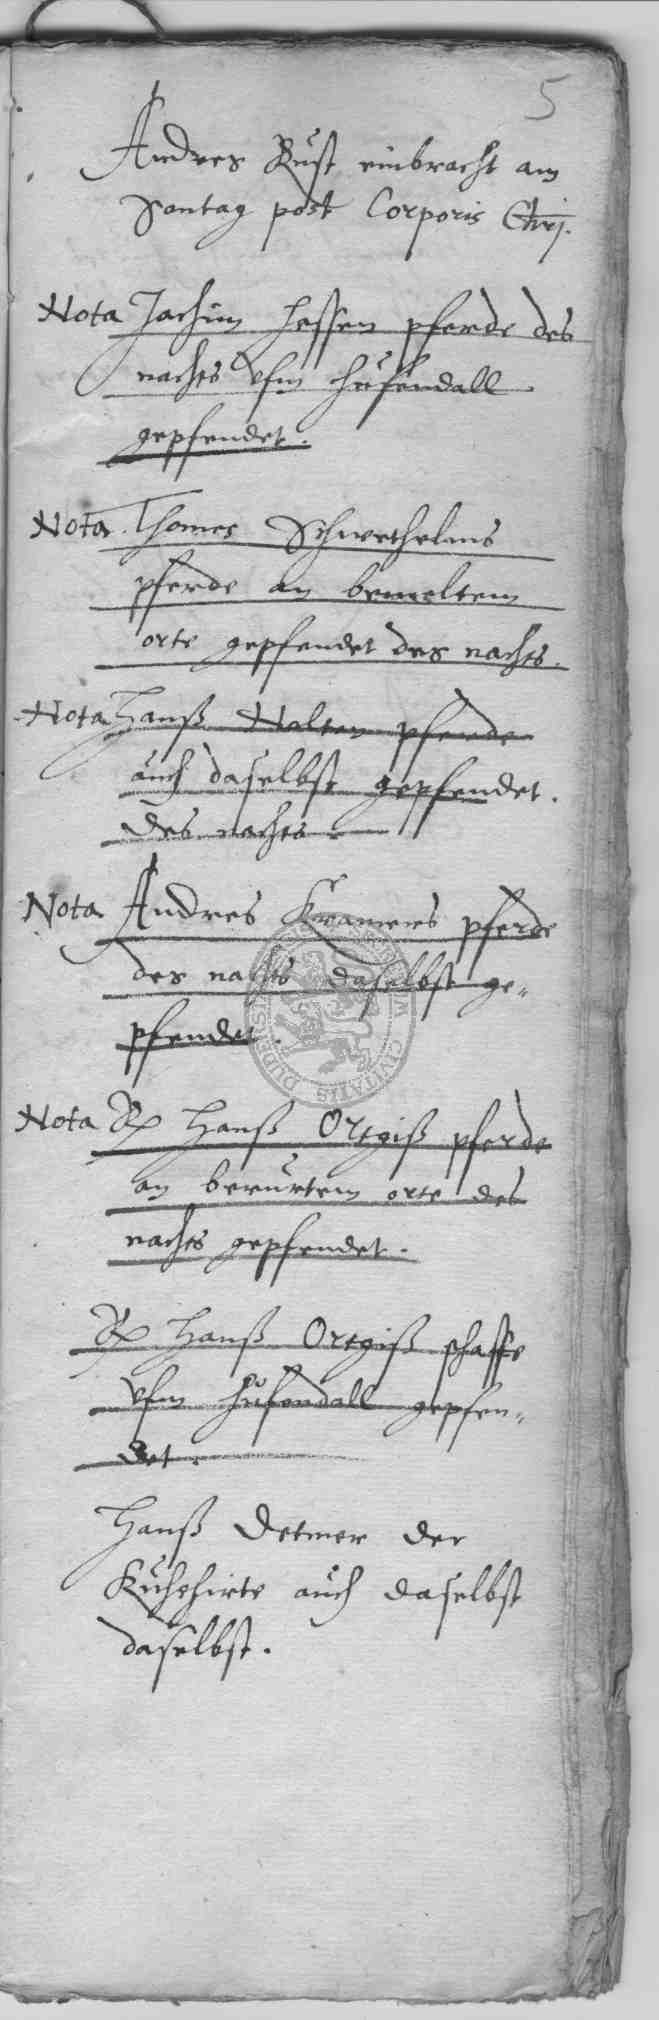 5
Andres Rust einbracht am
Sontag post Corporis Chrj.
Nota Jachim Hessen pferde des
nachts vfm Hufendall
gepfendet.
Nota Thomes Schwethelms
pferde an bemeltem
orte gepfendet des nachts.
Nota Hanß Nolten pferde
auch daselbst gepfendet.
des nachts.
Nota Andres Kramers pferde
des nachts daselbst ge„
pfendet.
Nota Hanß Ortgiß pferde
an berurtem orte des
nachts gepfendet.
Hanß Ortgiß schaffe
vfm Hufendall gepfen„
det.
Hanß Detmer der
Kuhehirte auch daselbst
daselbst.
CIVITATIS DUDER